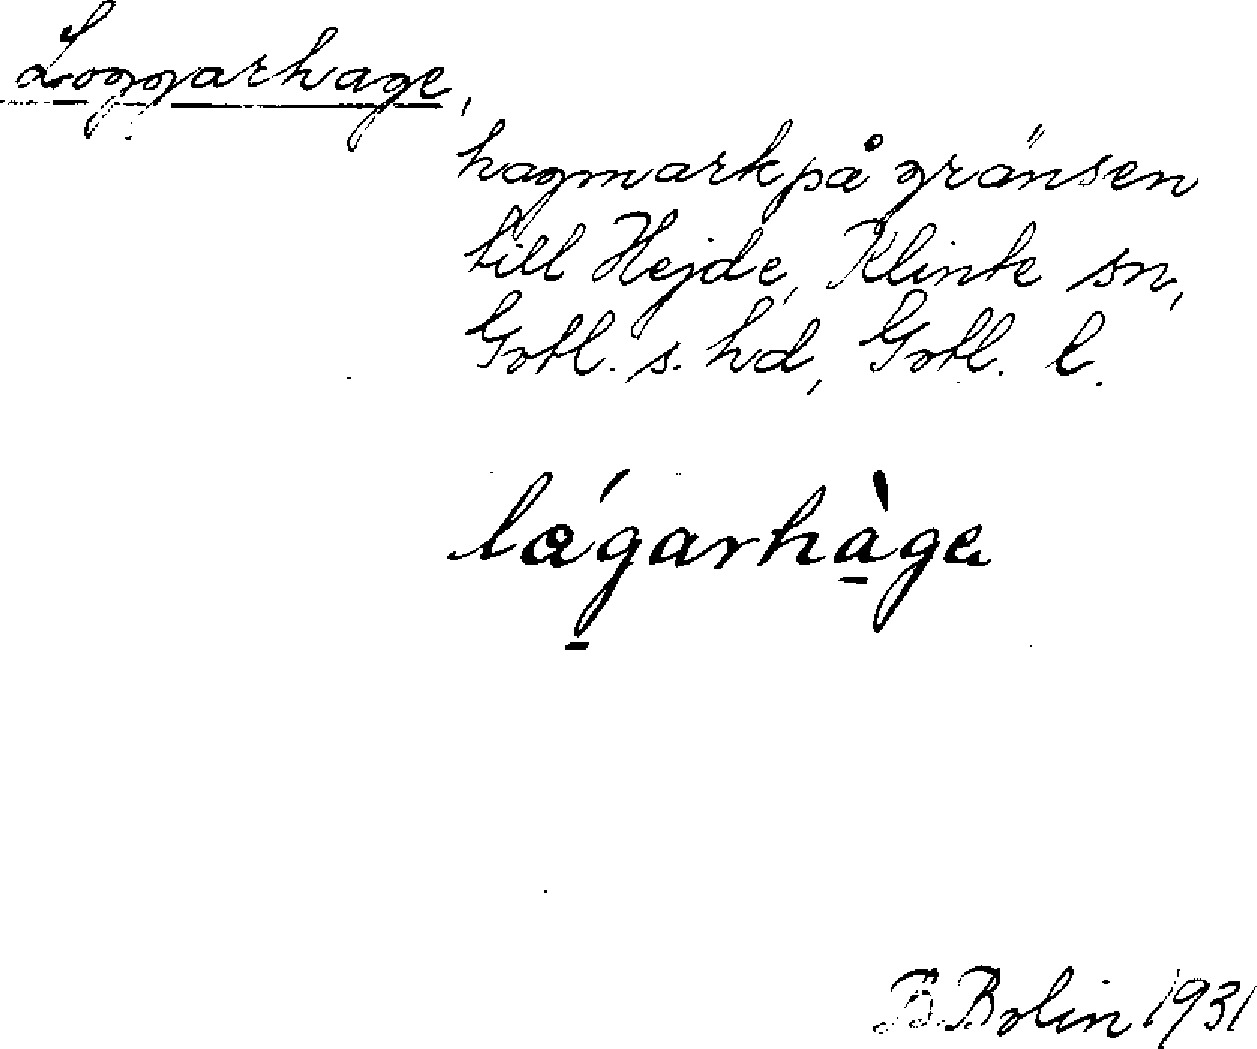 Loggarhage,
hagmark på gränsen
till Hejde, Klinte sn,
Gotl. s. hd, Gotl. l.
lǻg̱arhà̱ge
B. Bolin 1931